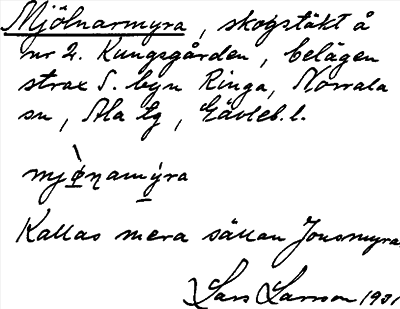 Mjölnarmyra, skogstäkt å
nr 2. Kungsgården, belägen
strax S. byn Ringa, Norrala
sn, Ala tg, Gävleb. l.
mjø̀ṇamýra
Kallas mera sällan Jonsmyra.
Lars Larsson 1931